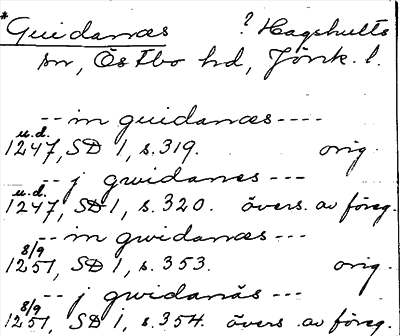 *Guidanæs ? Hagshults
sn, Östbo hd, Jönk. l.
-- in guidanæs ----
u.d.
1247, SD 1, s. 319. orig.
-- j gwidanes ---
u.d.
1247, SD 1, s. 320. övers. av föreg.
-- in gwidanæs ---
8/9
1251, SD 1, s. 353. orig.
-- j gwidanäs ---
8/9
1251, SD 1, s. 354. övers. av föreg.